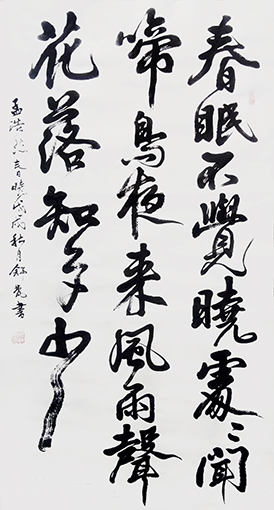 春眠不覺曉處〻聞
啼鳥夜来風雨聲
花落知多少
孟浩然春曉秋月書